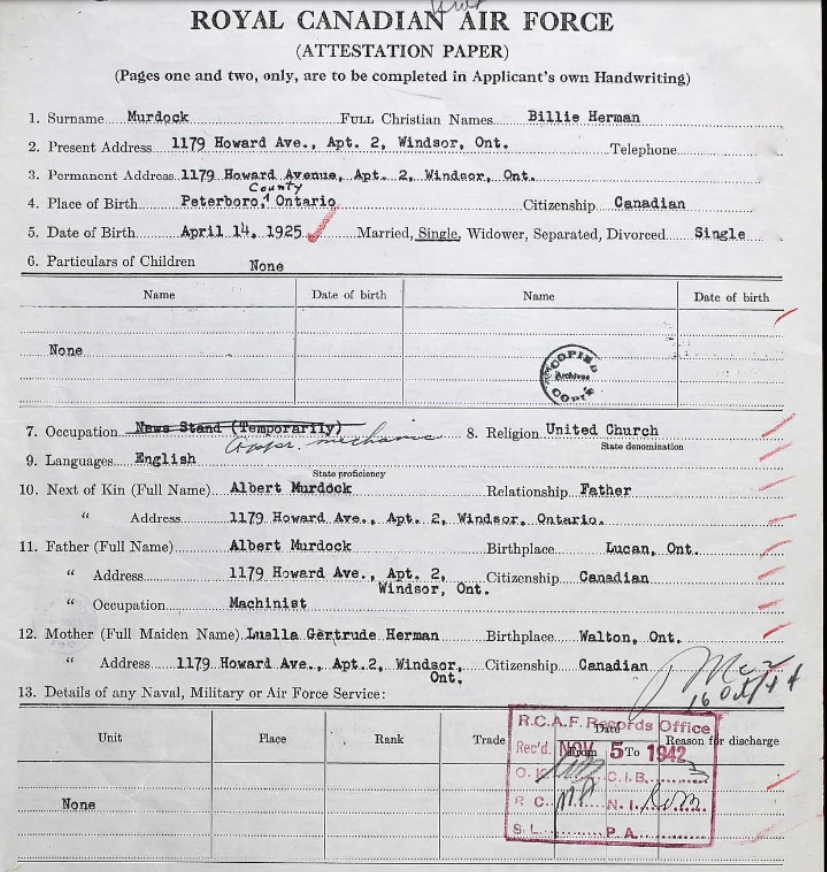 ROYAL CANADIAN AIR FORCE
(ATTESTATION PAPER)
(Pages one and two, only, are to be completed in Applicant's own Handwriting)
1. Surname Murdock FULL Christian Names Billie Herman
2. Present Address 1179 Howard Ave., Apt. 2, Windsor, Ont. Telephone
3. Permanent Address 1179 Howard Avenue, Apt. 2, Windsor, Ont.
County
4. Place of Birth Peterboro, Ontario Citizenship Canadian
5. Date of Birth April 14, 1925 Married, Single, Widower, Separated, Divorced Single
6. Particulars of Children None
Name Date of birth Name Date of birth
None
COPIED
Archives
COPIE
7. Occupation News Stand (Temporarily) 8. Religion United Church
Appr. mechanic State denomination
9. Languages English
State proficiency
10. Next of Kin (Full Name) Albert Murdock Relationship Father
“ Address 1179 Howard Ave., Apt. 2, Windsor, Ontario.
11. Father (Full Name) Albert Murdock Birthplace Lucan, Ont.
“ Address 1179 Howard Ave., Apt. 2, Citizenship Canadian
Windsor, Ont.
“ Occupation Machinist
12. Mother (Full Maiden Name) Luella Gertrude Herman Birthplace Walton, Ont.
“ Address 1179 Howard Ave., Apt.2, Windsor, Citizenship Canadian
Ont.
16 Oct/44
13. Details of any Naval, Military or Air Force Service:
R.C.A.F. Records Office
Date
Unit Place Rank Trade From To Reason for discharge
Rec'd. NOV 5 1942
O. K. C.I.B.
None
R C. N. I.
S. L. P A.